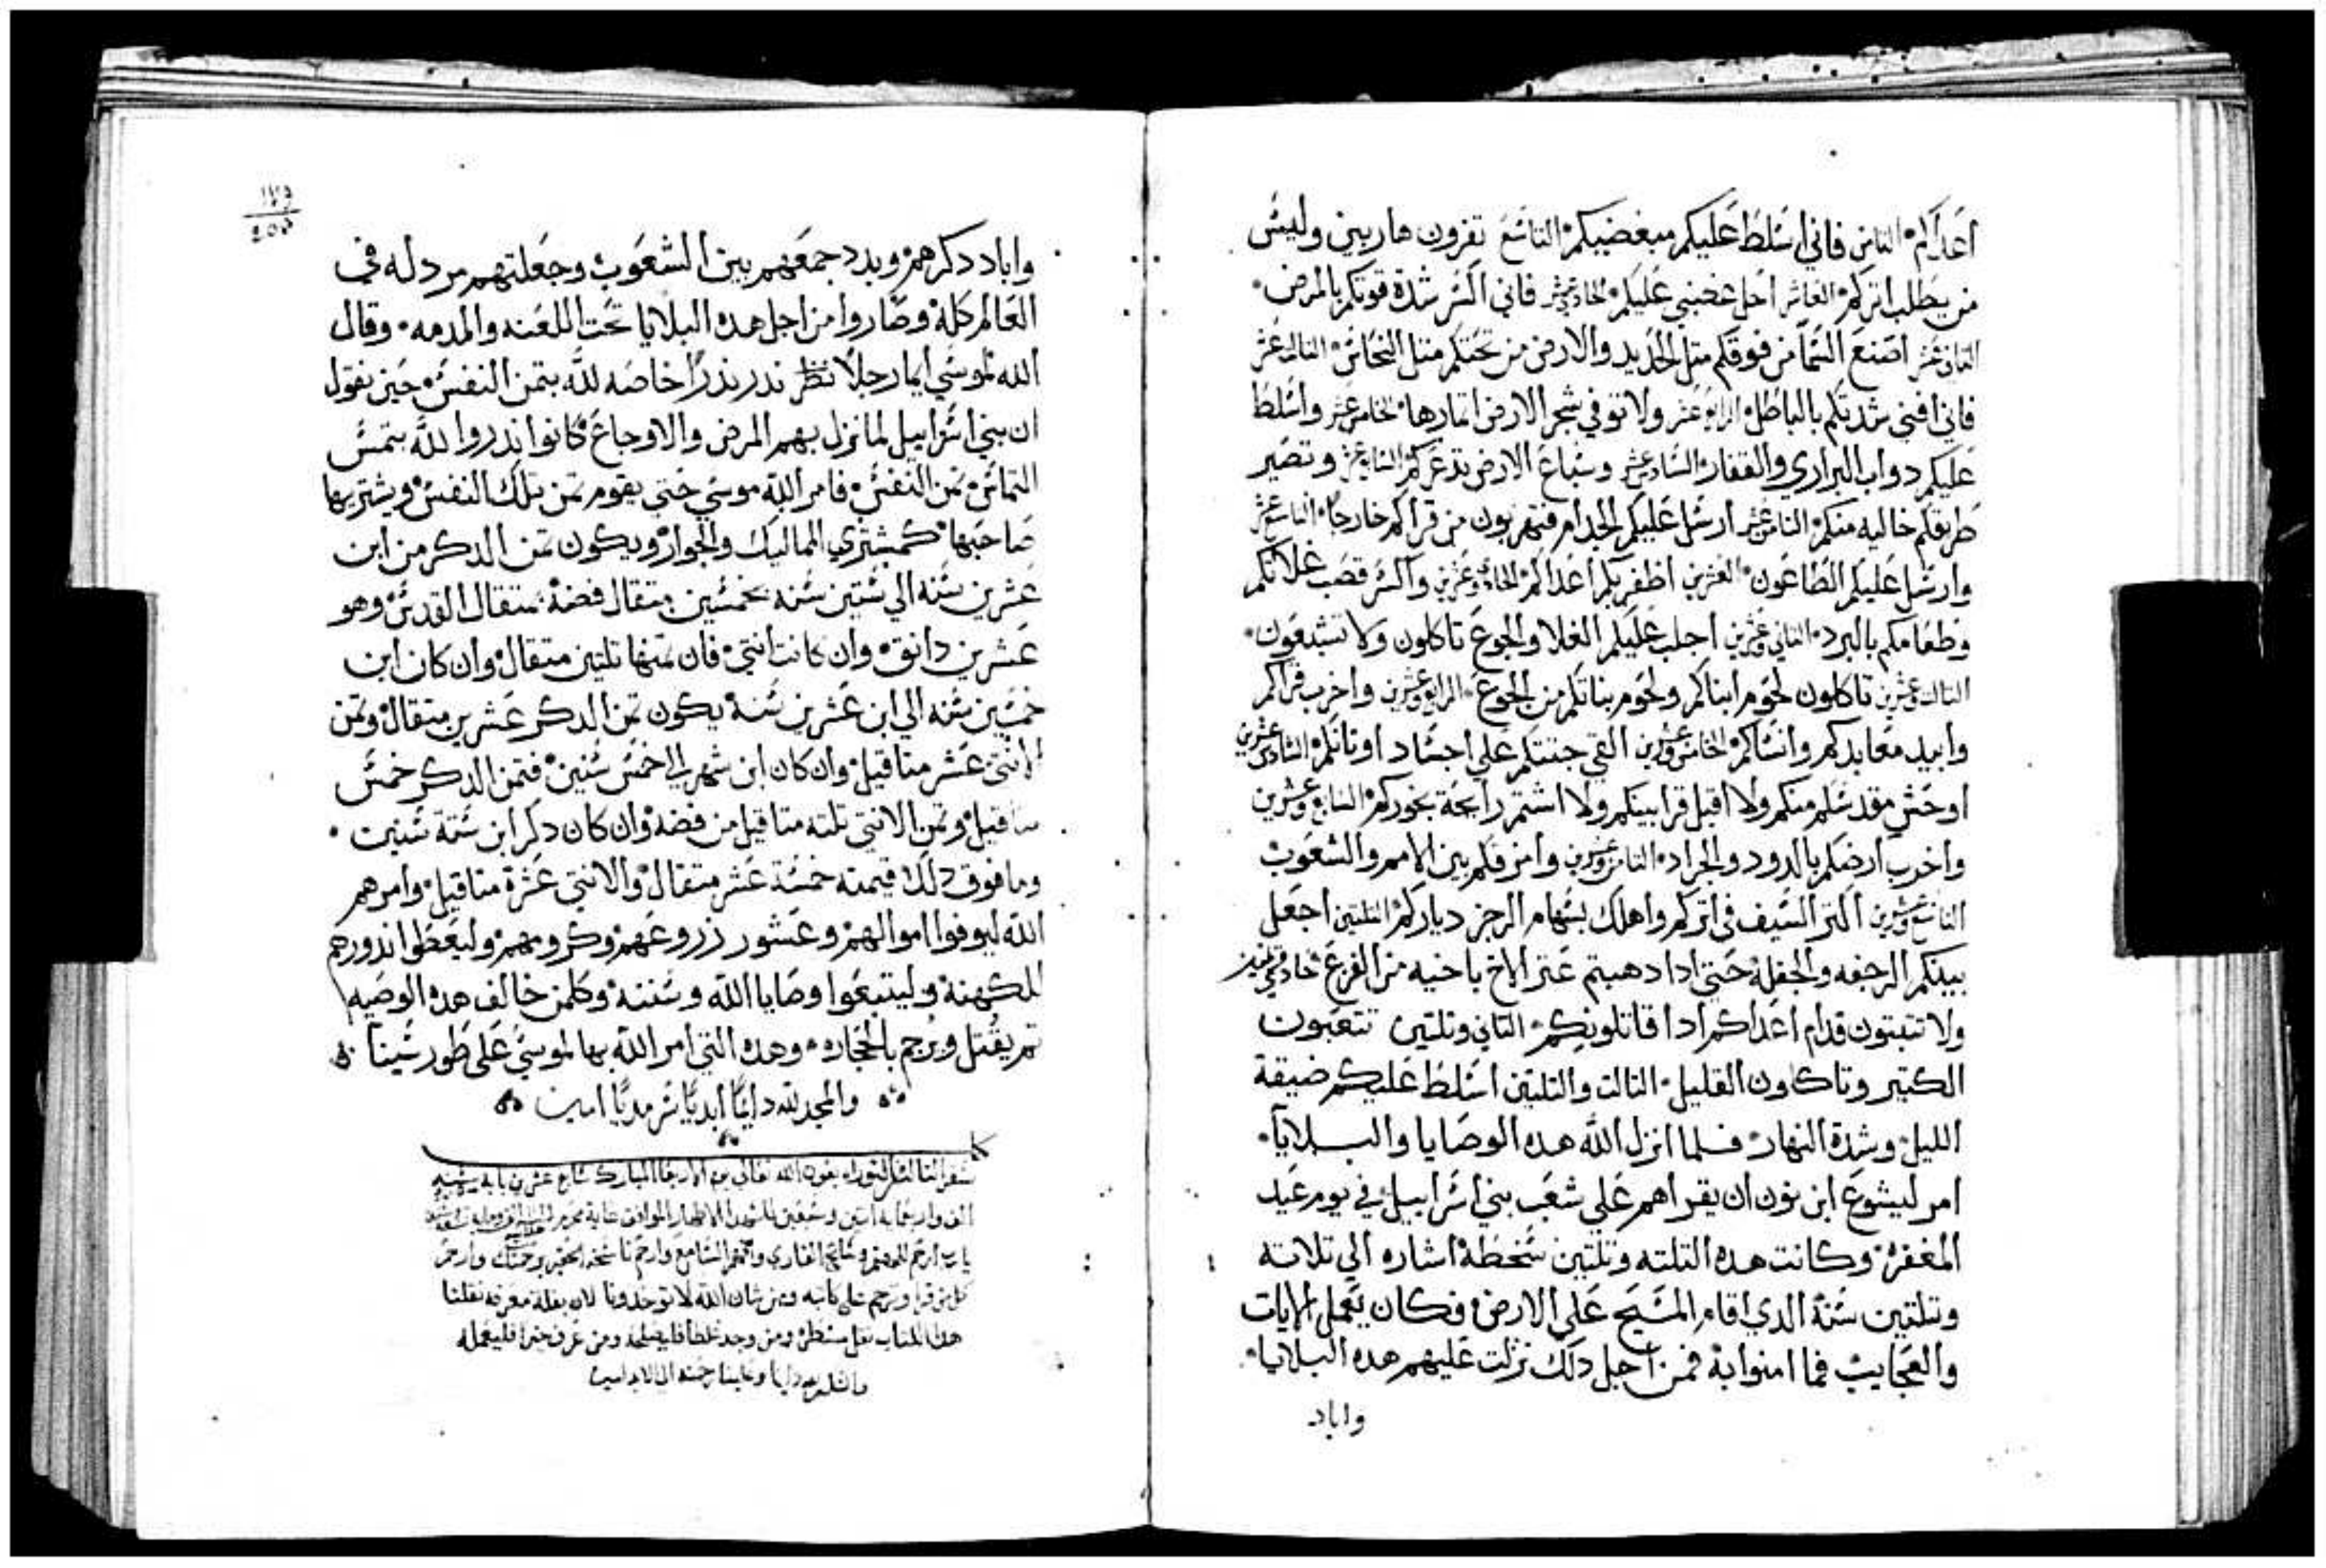 اعداكم الثامن فاني اسلط عليكم مبغضيكم التاسع تفرون هاربين وليس
من يطلب اتركم العاشر احل غضبي عليكم الحادي عشر فاني اكسر شدة قوتكم بالمرض
الثاني عشر اصنع السما من فوقكم متل الحديد والارض من تحتكم متل النحاس التالت عشر
فاني افني شدتكم بالباطل الرابع عشر ولا توفي شجر الارض اتمارها الخامس عشر واسلط
عليكم دواب البراري والقفار السادس عشر وسباع الارض تدعركم السابع عشر وتصير
طرقكم خاليه منكم الثامن عشر ارسل عليكم الجدام فتهربون من قراكم خارجا التاسع عشر
وارسل عليكم الطاعون العشرين اظفر بكم اعداكم الحادي وعشرين واكسر قصب غلاتكم
وطعامكم بالبرد التاني وعشرين اجلب عليكم الغلا والجوع تاكلون ولا تشبعون
التالت وعشرين تاكلون لحوم ابناكم ولحوم بناتكم من الجوع الرابع وعشرين واخرب قراكم
وابيد معابدكم وانساكم الخامس وعشرين القي جتتكم علي اجساد اوتانكم السادس وعشرين
اوحش مقدسكم منكم ولا اقبل قرابينكم ولا اشتم رايحة بخوركم السابع وعشرين
واخرب ارضكم بالدود والجراد التامن وعشرين وامزقكم بين الامم والشعوب
التاسع وعشرين اكتر السيف في اتركم واهلك بسهام الرجز دياركم التلتين اجعل
بينكم الرجفه والجفله حتي ادا دهبتم عتر الاخ باخيه من الفزع حادي وتلتين
ولا تتبتون قدام اعداكم ادا قاتلونكم التاني وتلتين تتعبون
الكتير وتاكلون القليل التالت والتلتين اسلط عليكم ضيقة
الليل وشدة النهار فلما انزل الله هده الوصايا والبلايا
امر ليشوع ابن نون ان يقراهم علي شعب بني اسراييل في يوم عيد
المغفره وكانت هده التلته وتلتين سخطة اشاره الي تلاته
وتلتين سنة الدي اقام المسيح علي الارض فكان يعمل الايات
والعجايب فما امنوا به فمن اجل دلك نزلت عليهم هده البلايا
واباد
واباد دكرهم وبدد جمعهم بين الشعوب وجعلتهم مردله في
العالم كله وصاروا من اجل هده البلايا تحت اللعنه والمدمه وقال
الله لموسي ايما رجلا ندر ندرا خاصه لله بتمن النفس حين نقول
ان بني اسراييل لما نزل بهم المرض والاوجاع كانوا ندروا لله
تمن النفس فامر الله موسي حتي يقوم تمن تلك النفس ويشتريها
صاحبها كمشتري المماليك والجوار ويكون تمن الدكر من ابن
عشرين سنه الي ستين سنه بخمسين متقال فضة بمتقال القدس وهو
عشرين دانق وان كانت انتي فان تمنها تلتين متقال وان كان ابن
خمسين سنه الي ابن عشرين سنة يكون تمن الدكر عشرين متقال وتمن
الانتي عشر متاقيل وان كان ابن شهر الي خمس سنين فتمن الدكر خمس
متاقيل وتمن الانتي تلته متاقيل من فضه وان كان دكر ابن ستة سنين
وما فوق دلك قيمته خمسة عشر متقال والانتي عشرة متاقيل وامرهم
الله ليوفوا اموالهم وعشور زروعهم وكرومهم وليعطوا ندورهم
للكهنة وليتبعوا وصايا الله وسننه وكلمن خالف هده الوصيه
تم يقتل ويرجم بالحجاره وهده التي امر الله بها لموسي علي طور سينا
والمجد لله دايما ابديا سرمديا امين
سفر التالت للتوراه بعون الله تعالي يوم الاربعا المبارك سابع عشرين بابه
الف واربعمايه اتنين وسبعين للشهدا الاطهار الموافق
يا رب ارحم القاري والسامع وارحم ناسخه الحقير برحمتك وارحم
كل من قرا وترحم علي كاتبه ومن شان الله لا توخدونا لان بقلة معرفه نقلنا
هدا الكتاب ومن وجد غلطا فليصلحه ومن عرف خيرا فليعمله
دايما وعلينا رحمته الي الابد امين